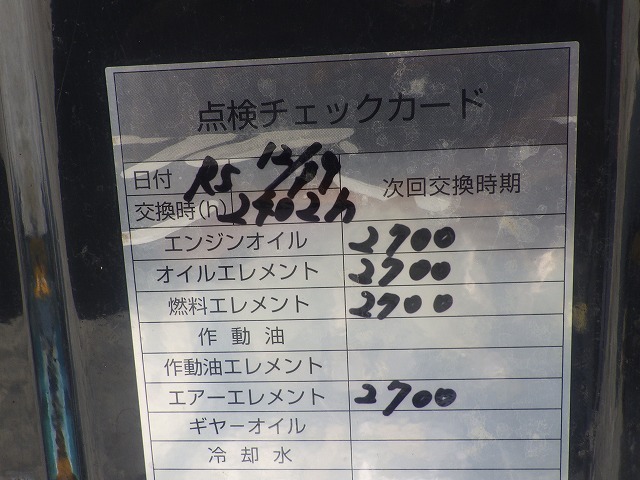 点検チェックカード
日付 R5 12/19 次回交換時期
交換時(h) 2402h
エンジンオイル 2700
オイルエレメント 2700
燃料エレメント 2700
作動油
作動油エレメント
エアーエレメント 2700
ギヤーオイル
冷却水